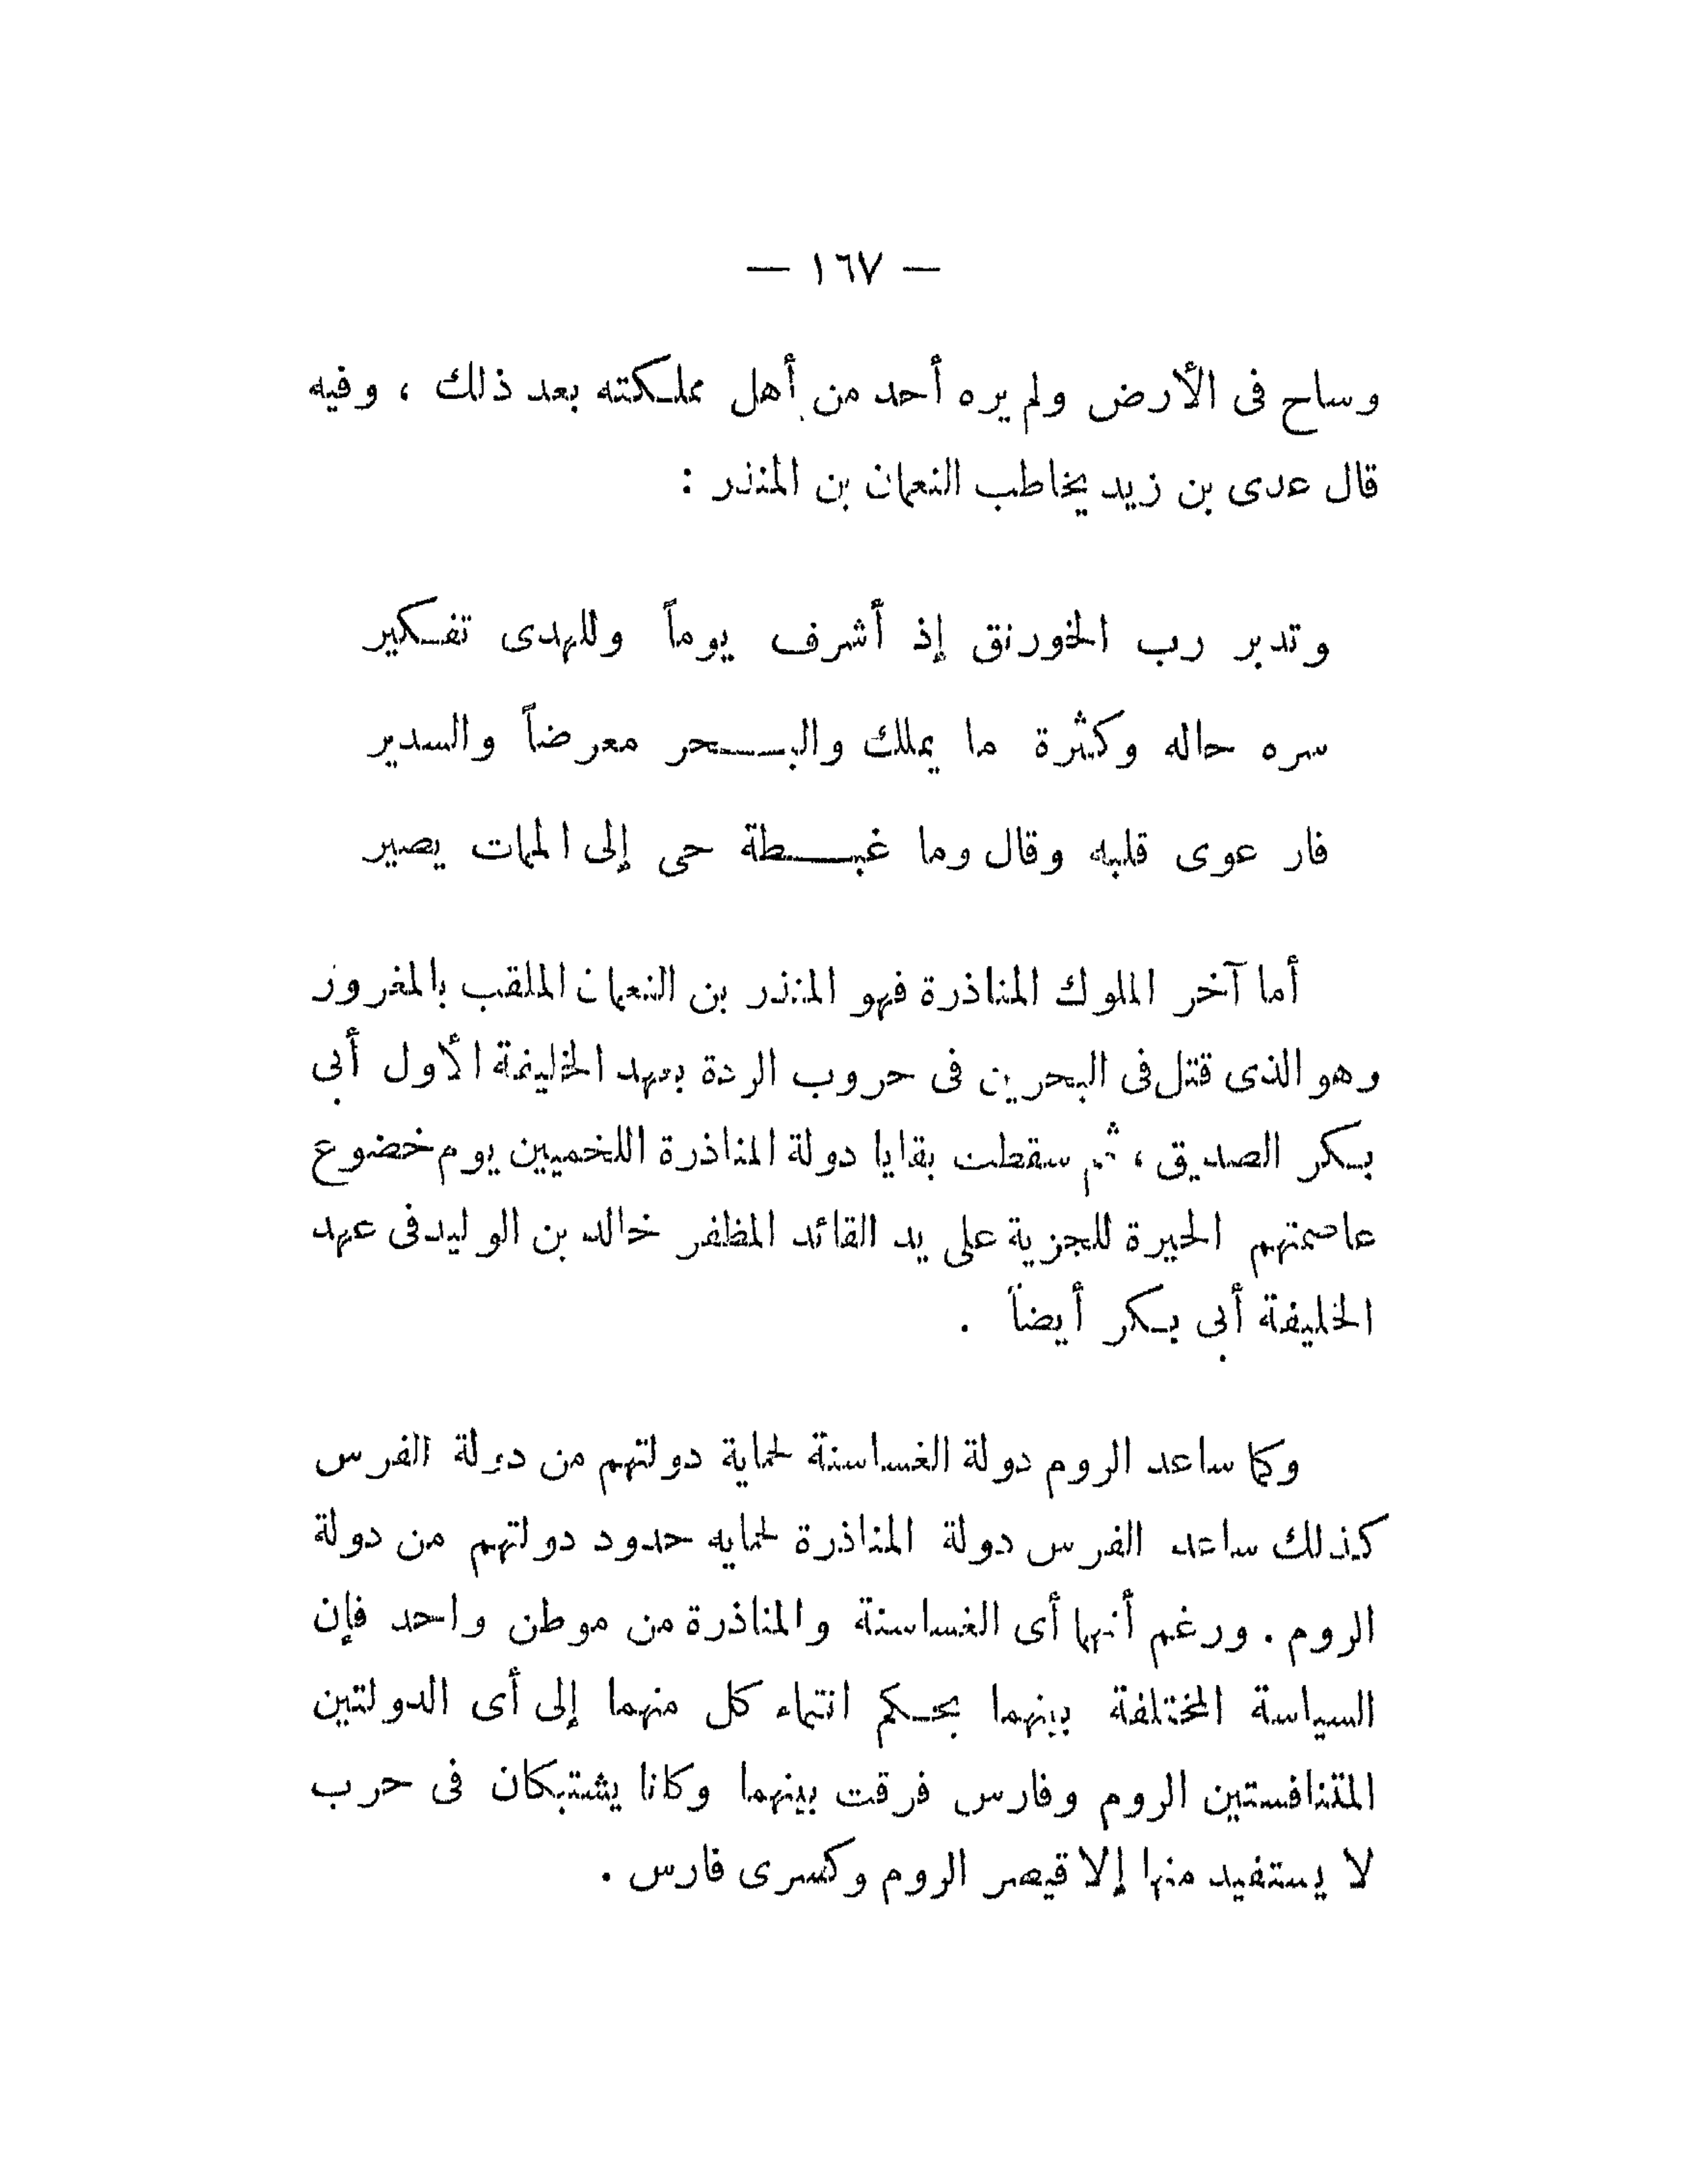 — ١٦٧ —
وساح فى الأرض ولم يره أحد من أهل مملكته بعد ذلك ، وفيه
قال عدى بن زيد يخاطب النعمان بن المنذر :
وتدبر رب الخورنق إذ أشرف يوماً وللهدى تفكير
سره حاله وكثرة ما يملك والبحر معرضاً والسدير
فارعوى قلبه وقال وما غبطة حى إلى الممات يصير
أما آخر الملوك المناذرة فهو المنذر بن النعمان الملقب بالمغرور
وهو الذى قتل فى البحرين فى حروب الردة بعهد الخليفة الأول أبى
بكر الصديق ، ثم سقطت بقايا دولة المناذرة اللخميين يوم خضوع
عاصمتهم الحيرة للجزية على يد القائد المظفر خالد بن الوليد فى عهد
الخليفة أبى بكر أيضاً .
وكما ساعد الروم دولة الغساسنة لحماية دولتهم من دولة الفرس
كذلك ساعد الفرس دولة المناذرة لحمايه حدود دولتهم من دولة
الروم . ورغم أنهما أى الغساسنة والمناذرة من موطن واحد فإن
السياسة المختلفة بينهما بحكم انتماء كل منهما إلى أى الدولتين
المتنافستين الروم وفارس فرقت بينهما وكانا يشتبكان فى حرب
لا يستفيد منها إلا قيصر الروم وكسرى فارس .